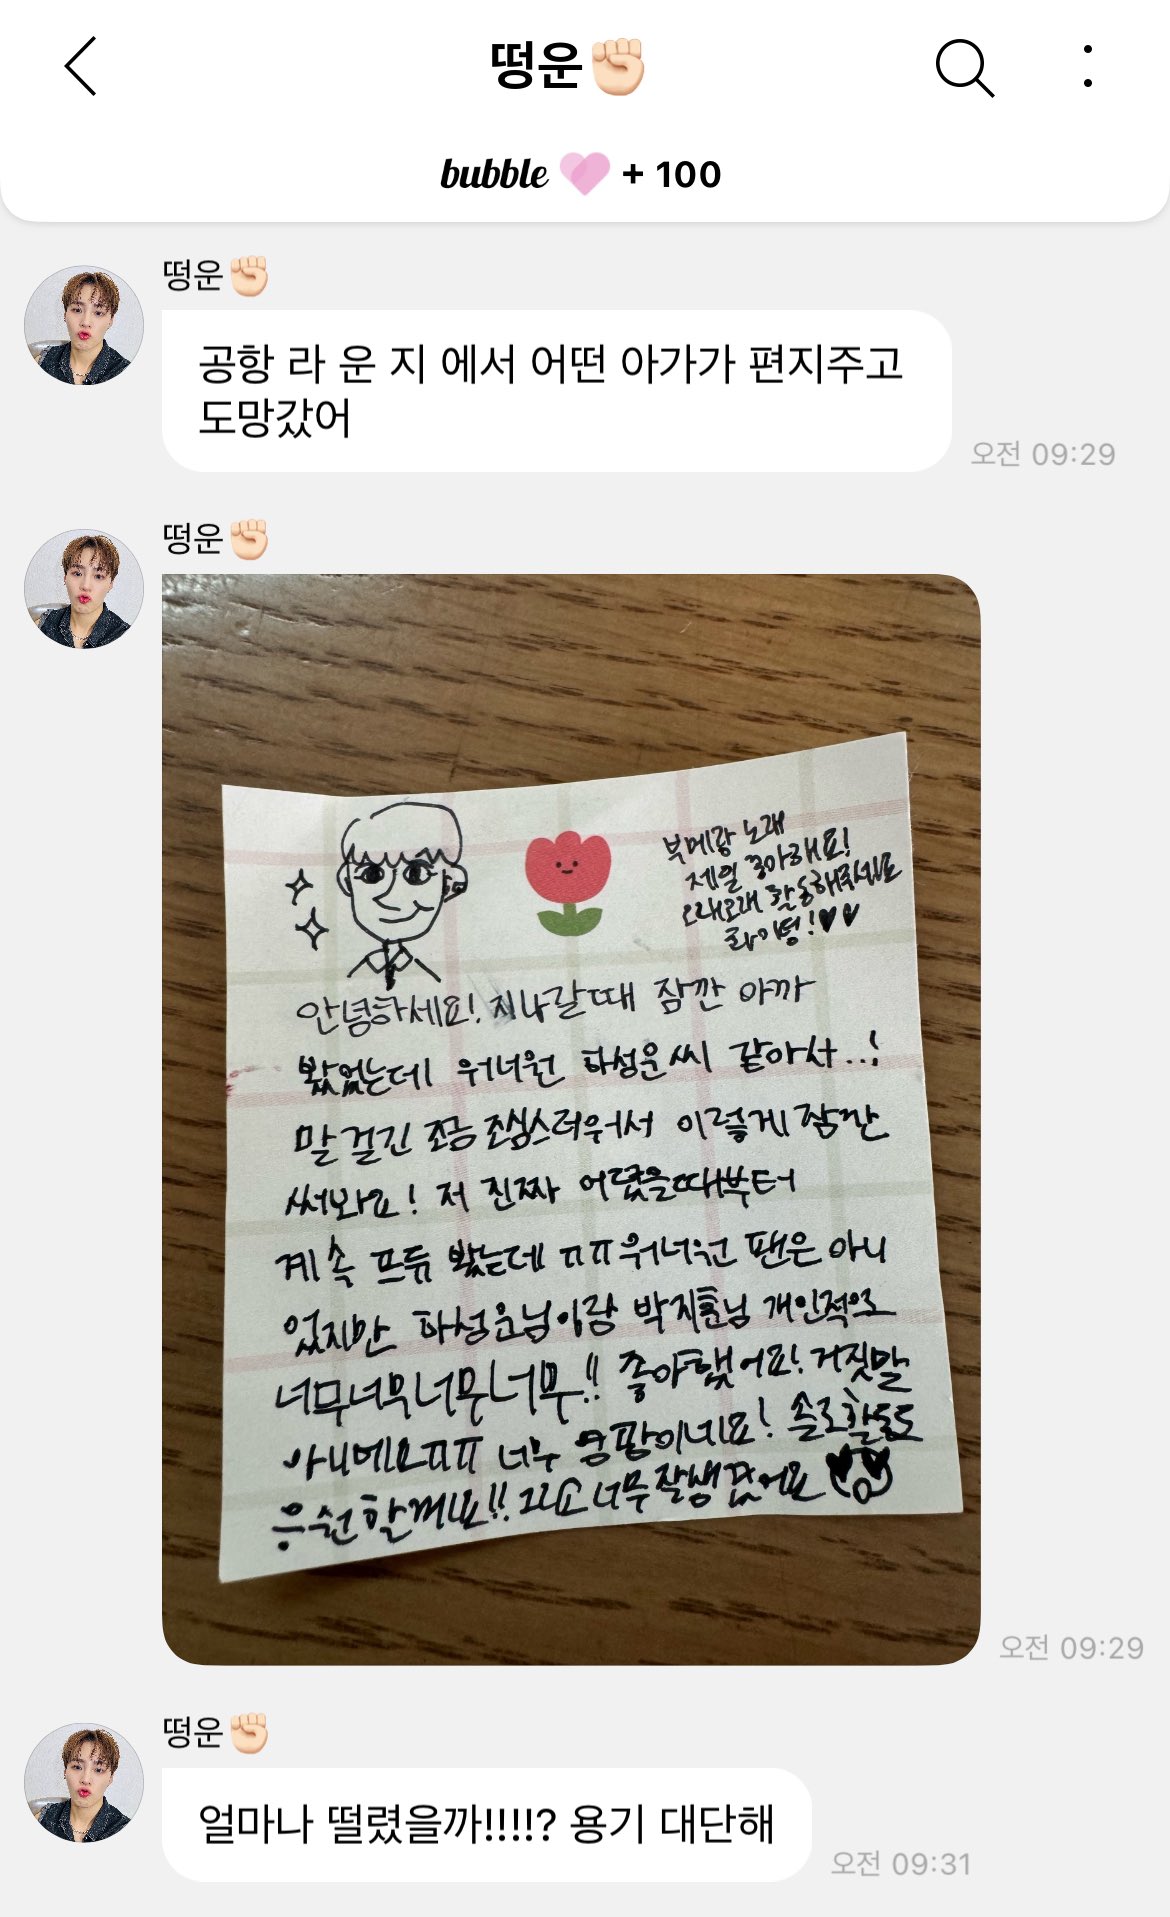 떵운✊🏻
bubble 🩷 + 100
떵운✊🏻
공항 라 운 지 에서 어떤 아가가 편지주고
도망갔어
오전 09:29
떵운✊🏻
부메랑 노래
제일 좋아해요!
오래오래 활동해주세요
화이팅!♥♥
안녕하세요! 지나갈때 잠깐 아까
봤었는데 워너원 하성운씨 같아서..!
말 걸긴 조금 조심스러워서 이렇게 잠깐
써봐요! 저 진짜 어렸을때부터
계속 프듀 봤는데 ㅠㅠ 워너원 팬은 아니
었지만 하성운님이랑 박지훈님 개인적으로
너무너무너무너무!! 좋아했어요! 거짓말
아니에요ㅠㅠ 너무 영광이네요! 솔로활동도
응원할께요!! 그리고 너무 잘생겼어요
오전 09:29
떵운✊🏻
얼마나 떨렸을까!!!!? 용기 대단해
오전 09:31